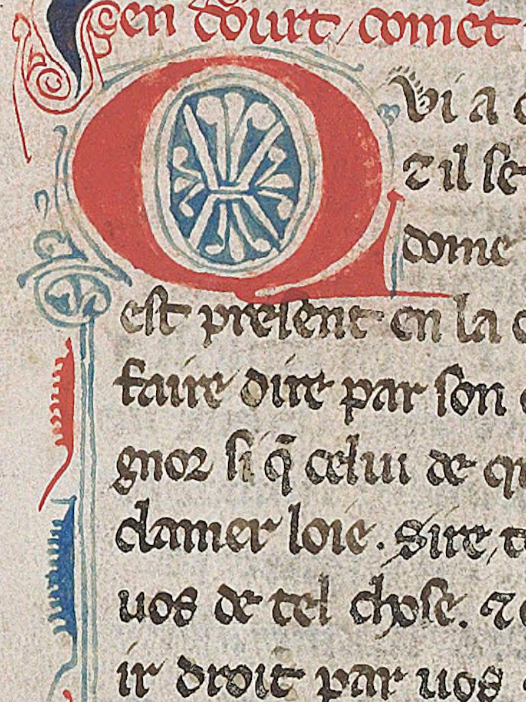 en court, coment
Qvi a
⁊ il se
dome
est present en la
faire dire par son
gnor si q̄ celui de q
clamer loie. Sire, t
uos de tel chose. ⁊
ir droit par uos